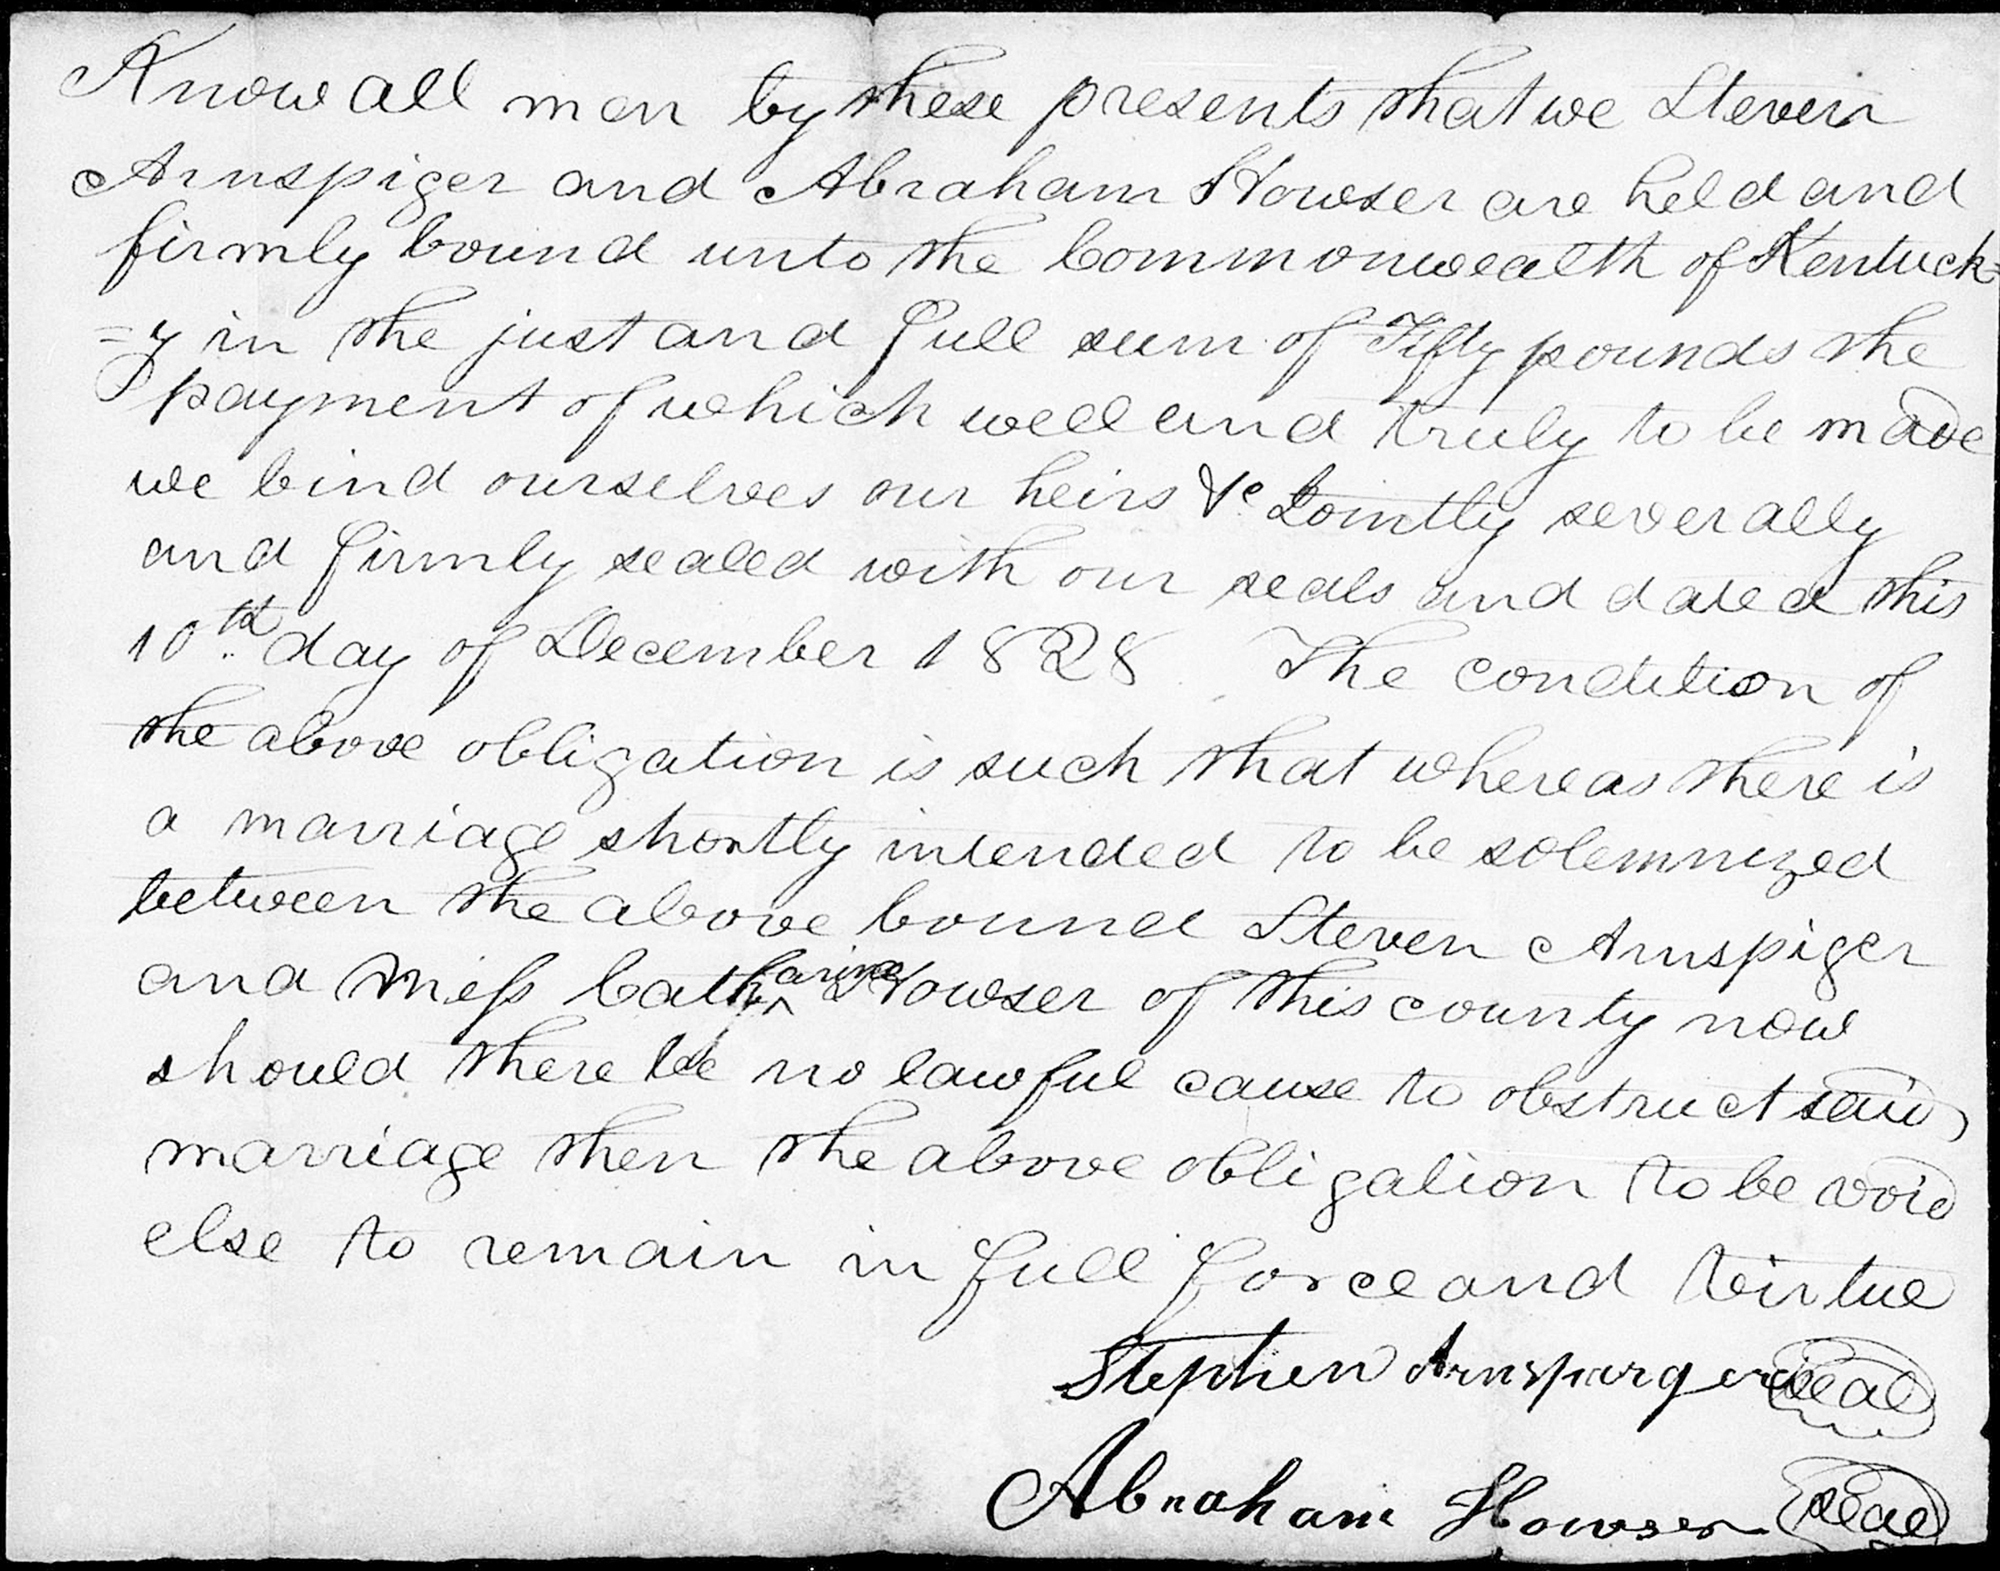 Know all men by these presents that we Steven
Arnspiger and Abraham Howser are held and
firmly bound unto the Commonwealth of Kentuck=
=y in the just and full sum of Fifty pounds the
payment of which well and truly to be made
we bind ourselves our heirs &c Jointly severally
and firmly sealed with our seals and dated this
10th day of December 1828 The condition of
the above obligation is such that whereas there is
a marriage shortly intended to be solemnized
between the above bound Steven Arnspiger
and Miss Catharine Howser of this county now
should there be no lawful cause to obstruct said
marriage then the above obligation to be void
else to remain in full force and virtue
Stephen Arnsparger seal
Abraham Howser seal